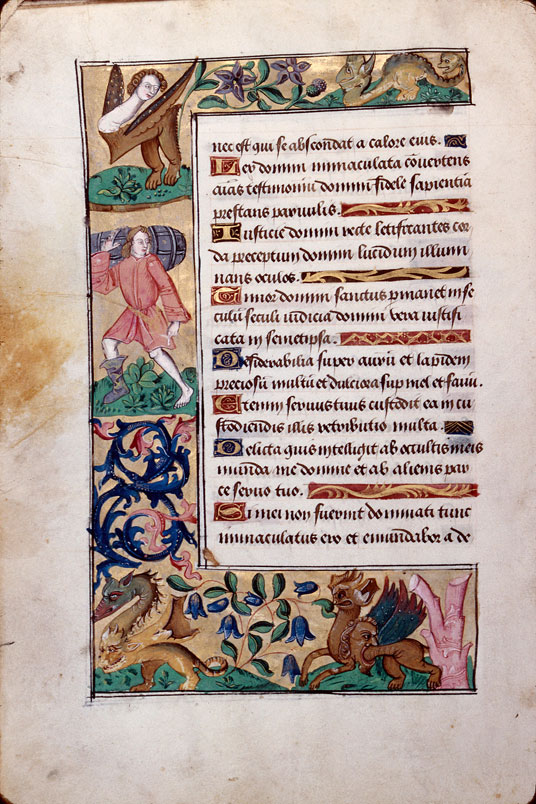 nec est qui se abscondat a calore eius.
Lex domini immaculata co͂vertens
a͂i͂as testimoniu͂ domini fidele sapientia͂
prestans parvulis.
Iusticie domini recte letificantes cor
da preceptum domini lucidum illumi
nans oculos.
Timor domini sanctus p͂manet in se
culu͂ seculi iudicia domini vera iustifi
cata in semetipsa.
Desiderabilia super auru͂ et lapidem
preciosu͂ multu͂ et dulciora sup͂ mel et favu͂.
Etenim servus tuus custodit ea in cu
stodiendis illis retributio multa.
Delicta quis intelligit ab ocultis meis
munda me domine et ab alienis par
ce servo tuo.
Si mei non fuerint dominati tunc
immaculatus ero et emundabor a de